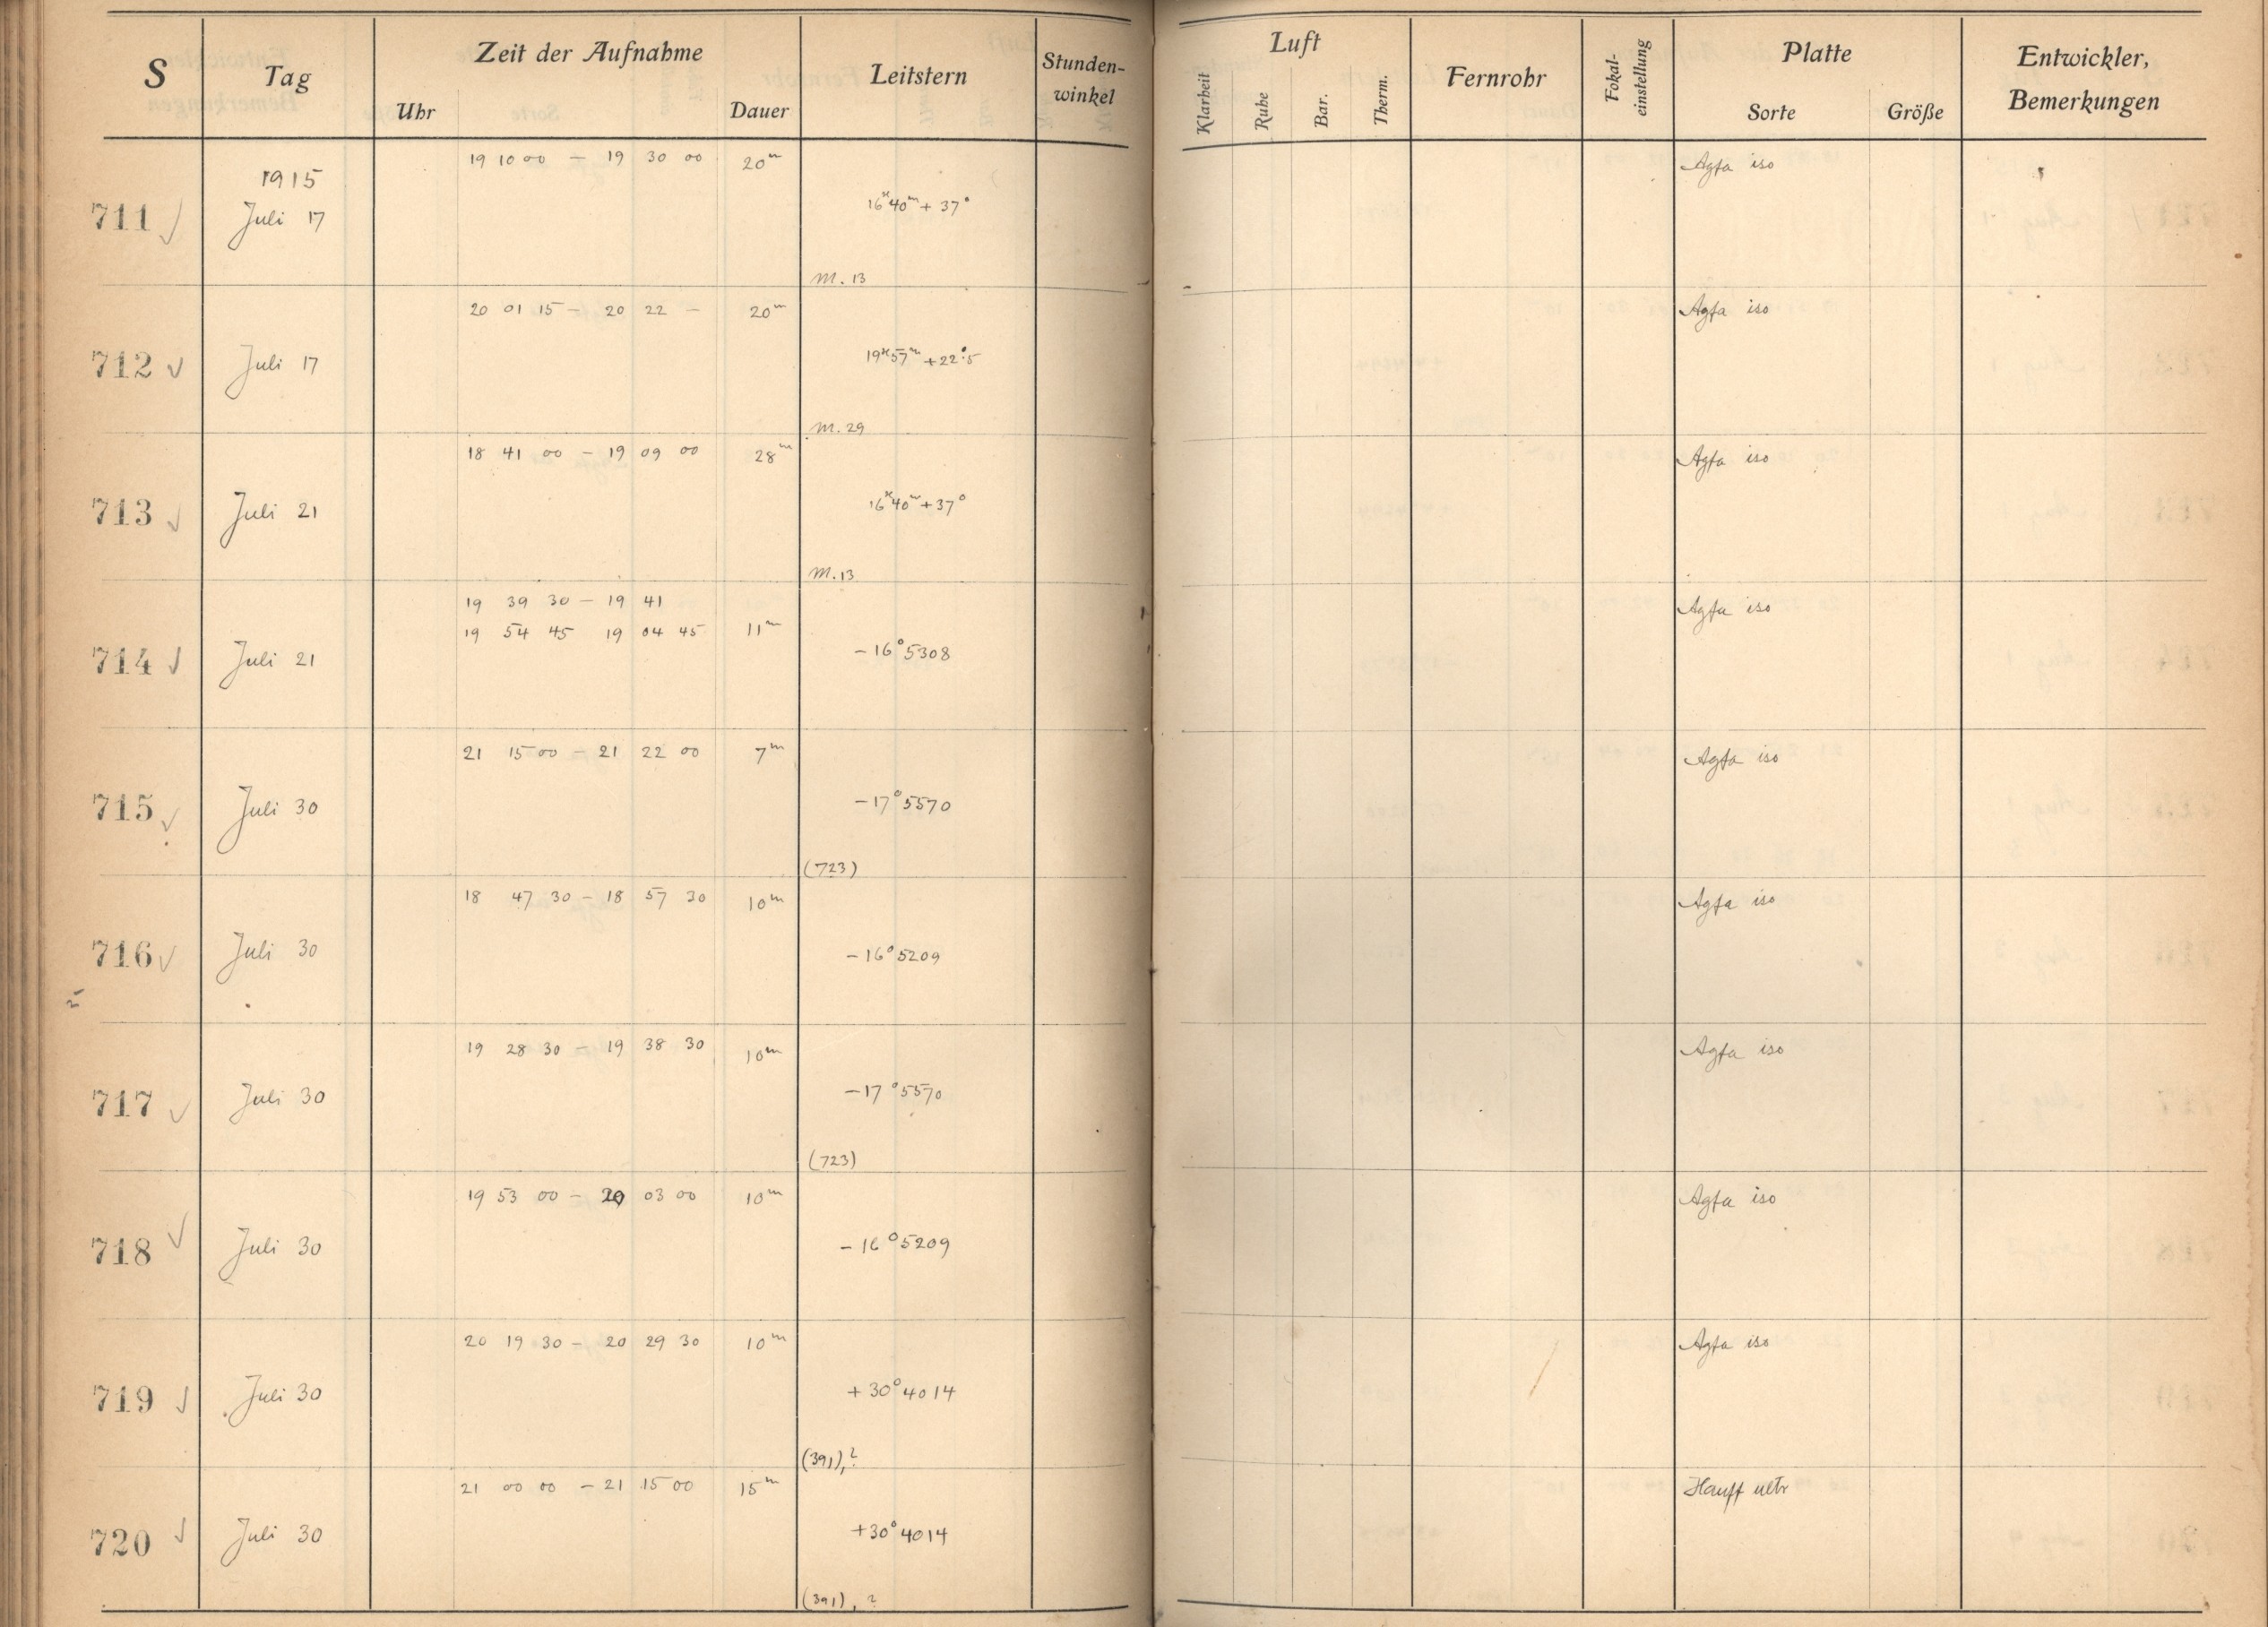 S Tag Zeit der Aufnahme Leitstern Stunden-winkel Luft Fernrohr Fokal-einstellung Platte Entwickler, Bemerkungen
Uhr Dauer Klarheit Ruhe Bar. Therm. Sorte Größe
19 10 00 – 19 30 00 20m Agfa iso
1915
711 Juli 17 16h 40m + 37°
M. 13
20 01 15 – 20 22 – 20m Agfa iso
712 Juli 17 19h 57m + 22°.5
M. 29
18 41 00 – 19 09 00 28m Agfa iso
713 Juli 21 16h 40m + 37°
M. 13
19 39 30 – 19 41 Agfa iso
19 54 45 19 04 45 11m
714 Juli 21 – 16° 5308
21 15 00 – 21 22 00 7m Agfa iso
715 Juli 30 – 17° 5570
(723)
18 47 30 – 18 57 30 10m Agfa iso
716 Juli 30 – 16° 5209
19 28 30 – 19 38 30 10m Agfa iso
717 Juli 30 – 17° 5570
(723)
19 53 00 – 20 03 00 10m Agfa iso
718 Juli 30 – 16° 5209
20 19 30 – 20 29 30 10m Agfa iso
719 Juli 30 + 30° 4014
(391), ?
21 00 00 – 21 15 00 15m Hauff ultr
720 Juli 30 + 30° 4014
(391), ?